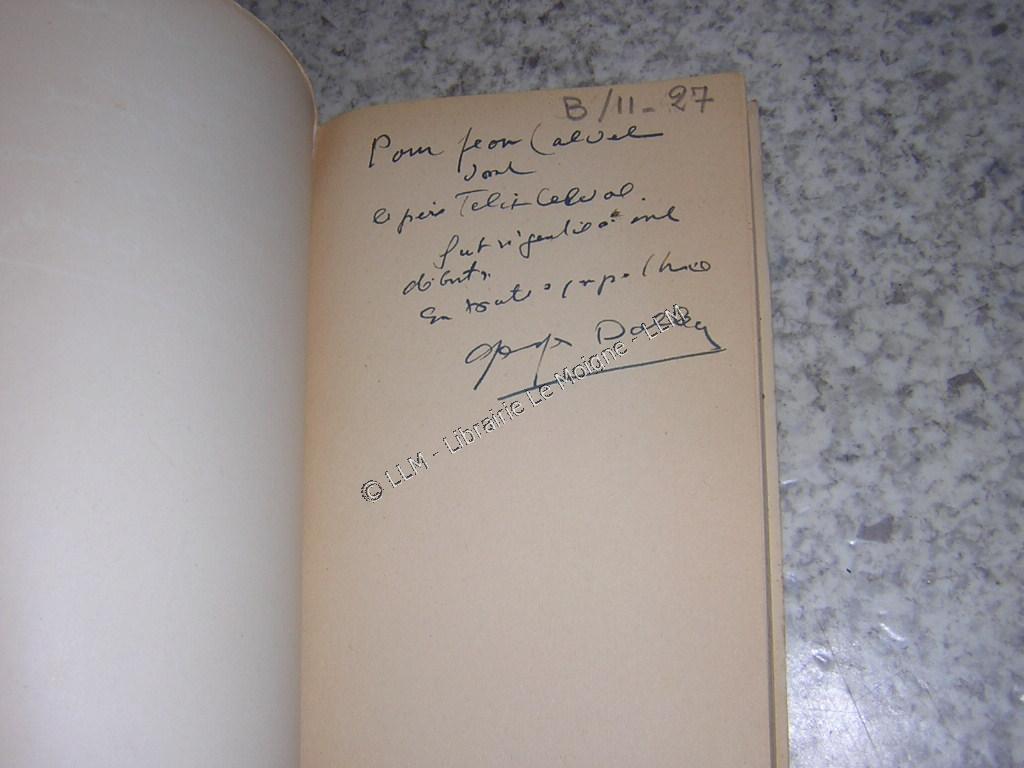 B/11-27
Pour Jean Calvel
dont
le père Felix Calvel
fut si gentil à mes
débuts.
En toute sympathie
Dabbey
© LLM - Librairie Le Moigne - LLM